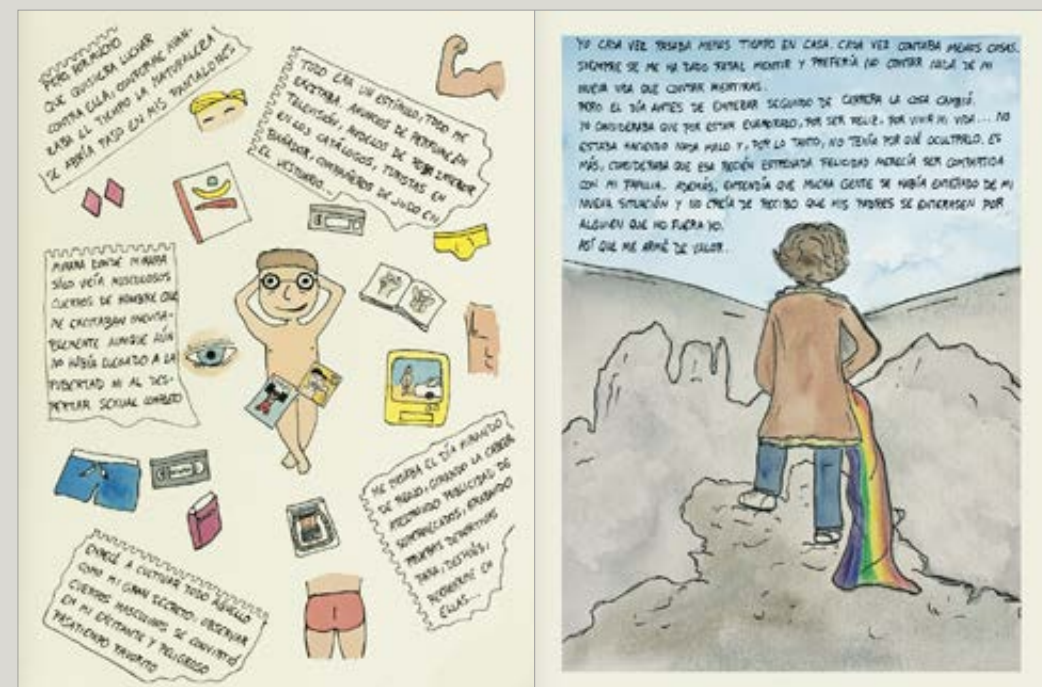 PERO POR MUCHO
QUE QUISIERA LUCHAR
CONTRA ELLA, CONFORME AVAN-
ZABA EL TIEMPO LA NATURALEZA
SE ABRÍA PASO EN MIS PANTALONES
TODO ERA UN ESTÍMULO, TODO ME
EXCITABA. ANUNCIOS DE PERFUME EN
TELEVISIÓN, MODELOS DE ROPA INTERIOR
EN LOS CATÁLOGOS, TURISTAS EN
BAÑADOR, COMPAÑEROS DE JUDO EN
EL VESTUARIO...
MIRARA DONDE MIRARA
SÓLO VEÍA MUSCULOSOS
CUERPOS DE HOMBRE QUE
ME EXCITABAN INEVITA-
BLEMENTE AUNQUE AÚN
NO HABÍA LLEGADO A LA
PUBERTAD NI AL DES-
PERTAR SEXUAL COMPLETO
ME PASABA EL DÍA MIRANDO
DE REOJO, GIRANDO LA CABEZA
PUBLICIDAD DE
SUPERMERCADOS, GRABANDO
PRUEBAS DEPORTIVAS
PARA, DESPUÉS,
EN
ELLAS...
EMPECÉ A CULTIVAR TODO AQUELLO
COMO MI GRAN SECRETO: OBSERVAR
CUERPOS MASCULINOS SE CONVIRTIÓ
EN MI EXCITANTE Y PELIGROSO
PASATIEMPO FAVORITO
YO CADA VEZ PASABA MENOS TIEMPO EN CASA. CADA VEZ CONTABA MENOS COSAS.
SIEMPRE SE ME HA DADO FATAL MENTIR Y PREFERÍA NO CONTAR NADA DE MI
NUEVA VIDA QUE CONTAR MENTIRAS.
PERO EL DÍA ANTES DE EMPEZAR SEGUNDO DE CARRERA LA COSA CAMBIÓ.
YO CONSIDERABA QUE POR ESTAR ENAMORADO, POR SER FELIZ, POR VIVIR MI VIDA... NO
ESTABA HACIENDO NADA MALO Y, POR LO TANTO, NO TENÍA POR QUÉ OCULTARLO. ES
MÁS, CONSIDERABA QUE ESA RECIÉN ESTRENADA FELICIDAD MERECÍA SER COMPARTIDA
CON MI FAMILIA. ADEMÁS, ENTENDÍA QUE MUCHA GENTE SE HABÍA ENTERADO DE MI
NUEVA SITUACIÓN Y NO CREÍA DE RECIBO QUE MIS PADRES SE ENTERASEN POR
ALGUIEN QUE NO FUERA YO.
ASÍ QUE ME ARMÉ DE VALOR.